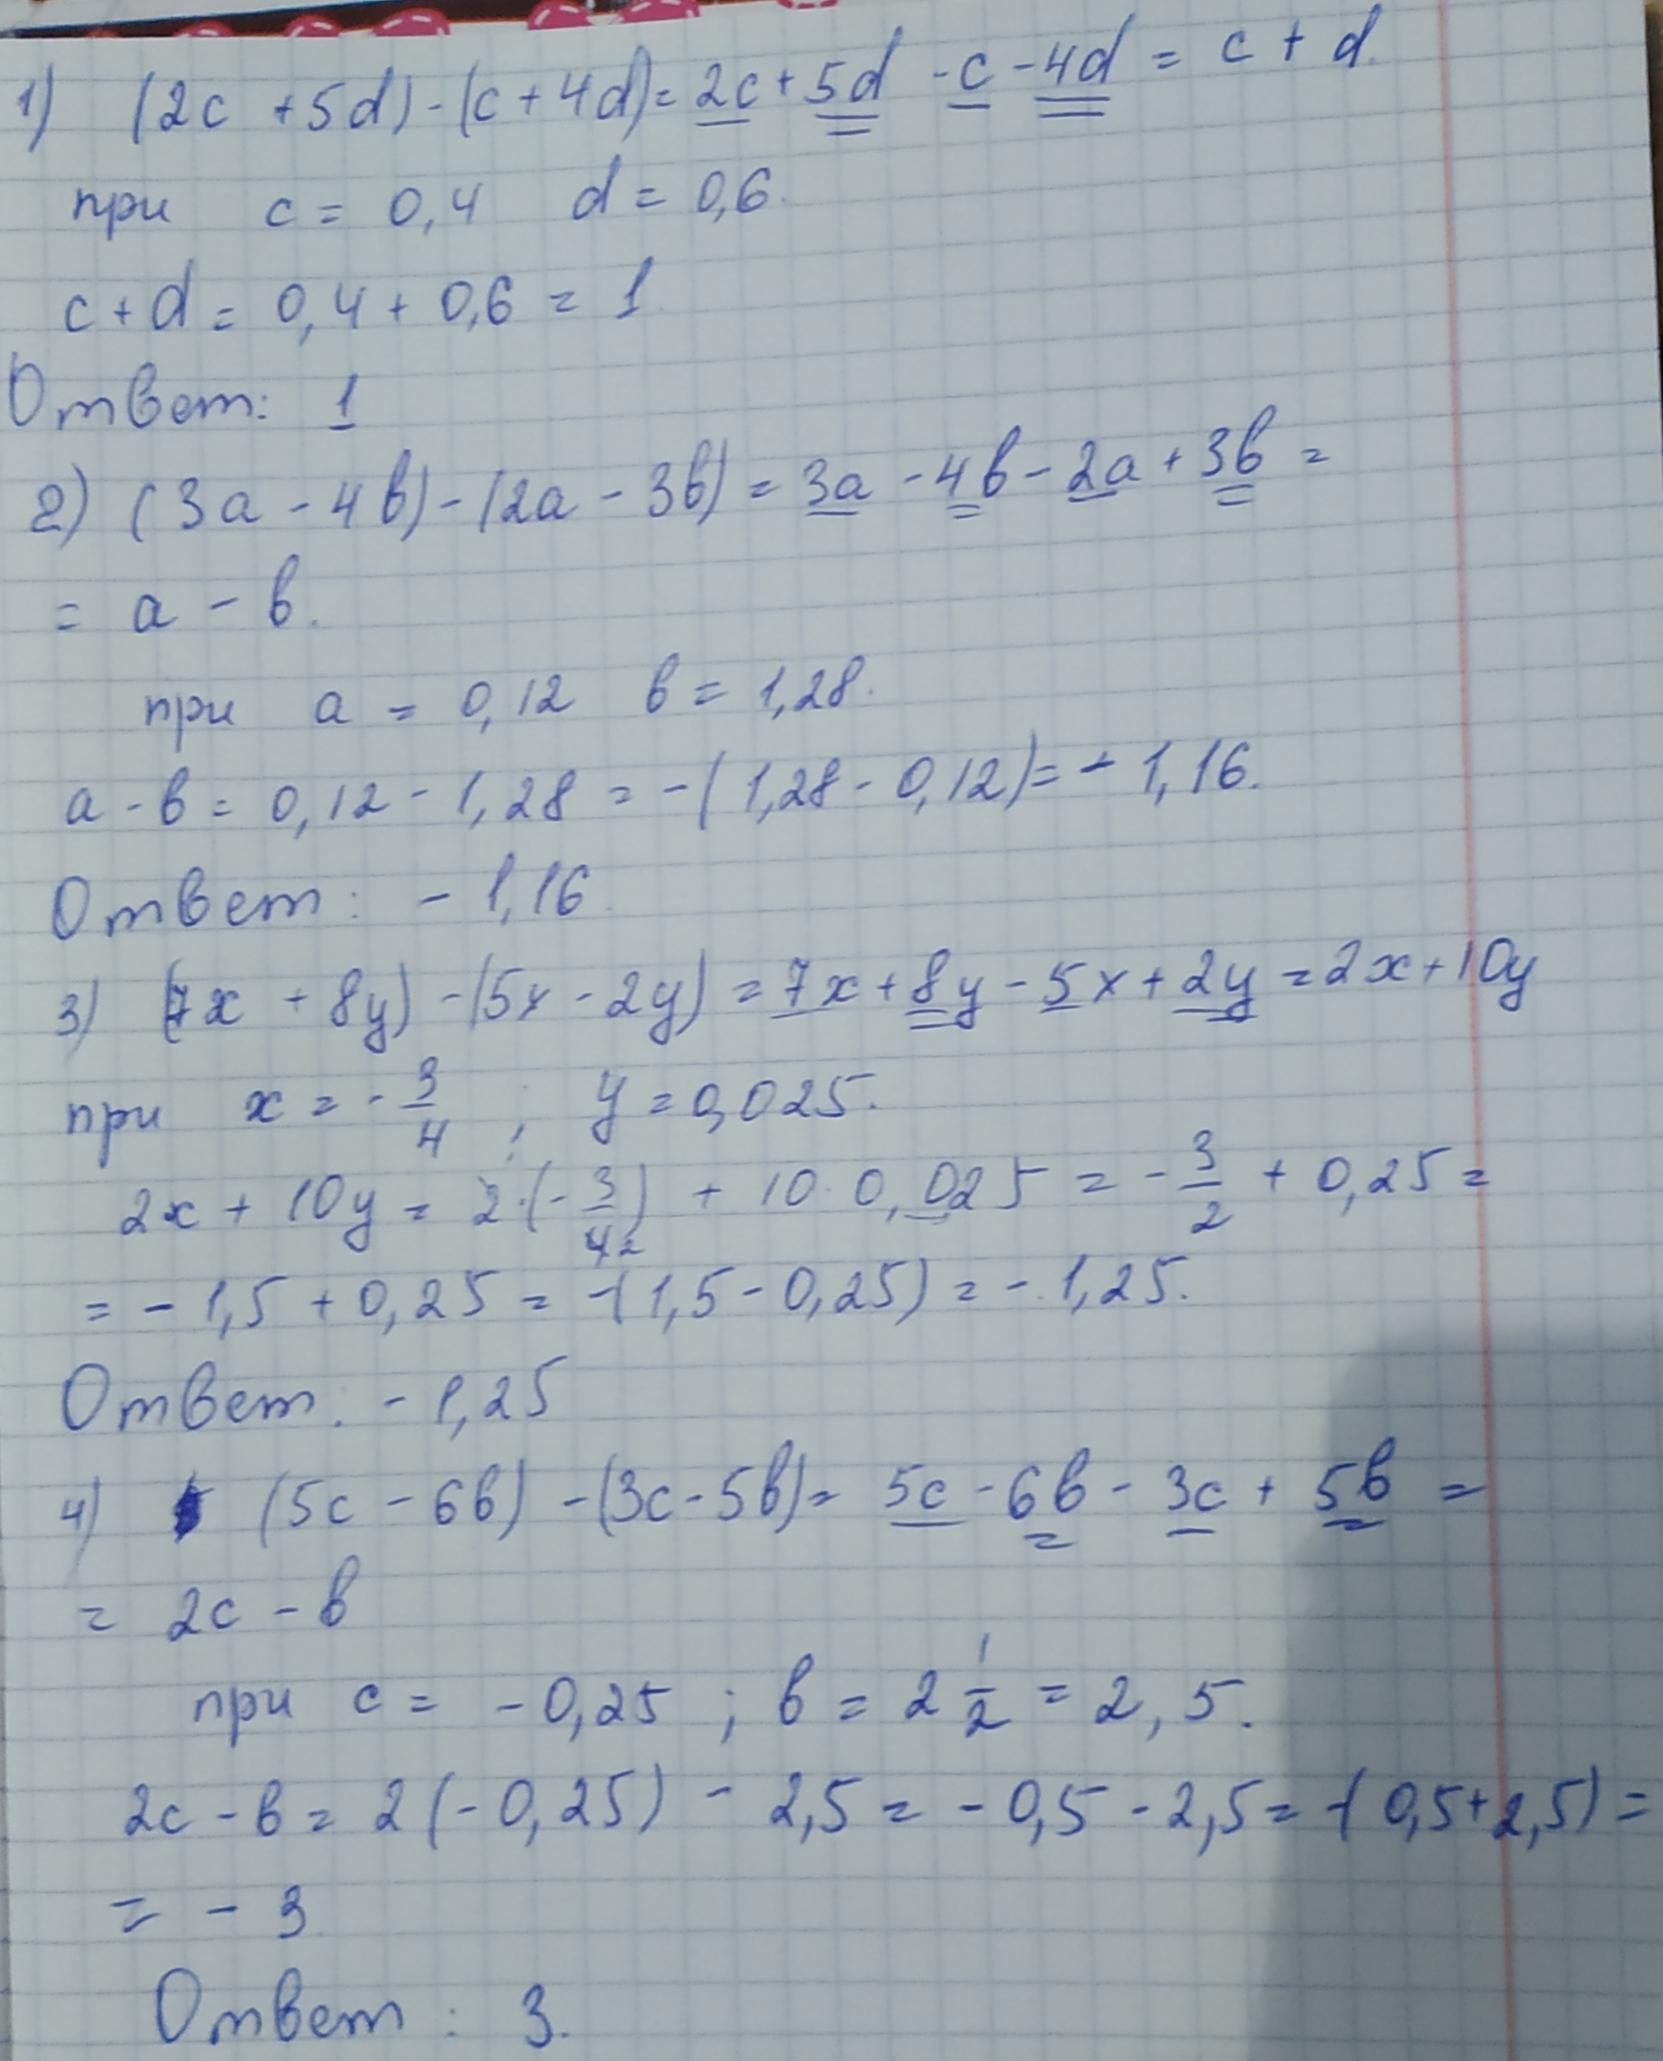 1) (2c + 5d) - (c + 4d) = 2c + 5d - c - 4d = c + d.
при c = 0,4 d = 0,6.
c + d = 0,4 + 0,6 = 1.
Ответ: 1
2) (3a - 4b) - (2a - 3b) = 3a - 4b - 2a + 3b =
= a - b.
при a = 0,12 b = 1,28.
a - b = 0,12 - 1,28 = -(1,28 - 0,12) = - 1,16.
Ответ: - 1,16
3) (7x + 8y) - (5x - 2y) = 7x + 8y - 5x + 2y = 2x + 10y
при x = - 3/4 ; y = 0,025.
2x + 10y = 2·(- 3/4 2) + 10·0,025 = - 3/2 + 0,25 =
= - 1,5 + 0,25 = -(1,5 - 0,25) = - 1,25.
Ответ: - 1,25
4) (5c - 6b) - (3c - 5b) = 5c - 6b - 3c + 5b =
= 2c - b
при c = - 0,25 ; b = 2 1/2 = 2,5.
2c - b = 2(- 0,25) - 2,5 = - 0,5 - 2,5 = -(0,5 + 2,5) =
= - 3
Ответ: 3.